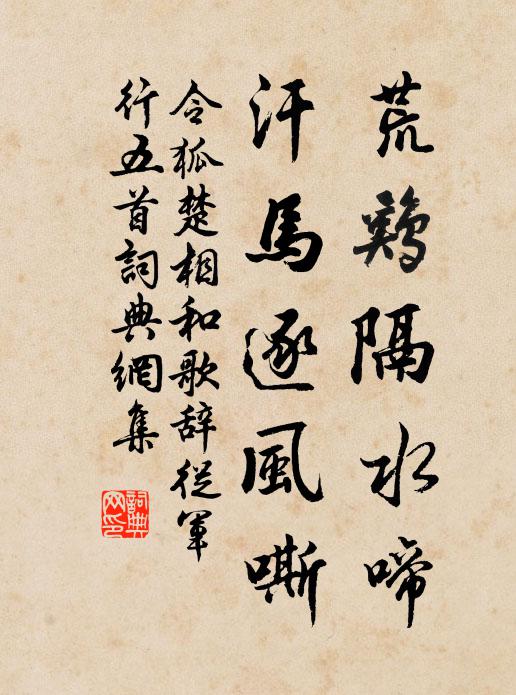 荒鷄隔水啼
汗馬逐風嘶
令狐楚相和歌辞從軍
行五首詞典網集
詞典
网印